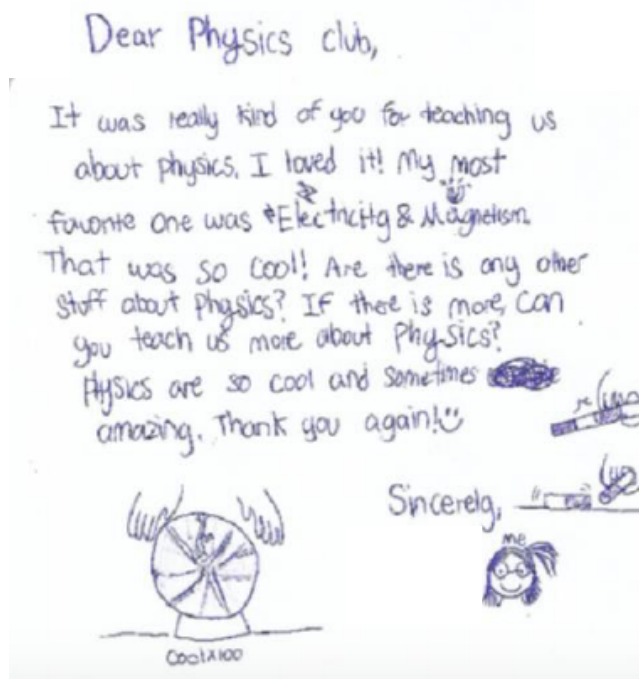 Dear Physics club,
It was really kind of you for teaching us
about physics. I loved it! My most
favorite one was Electricity & Magnetism.
That was so cool! Are there is any other
stuff about Physics? If there is more, can
you teach us more about Physics?
Physics are so cool and sometimes
amazing. Thank you again!
Sincerely,
me
Coolx100